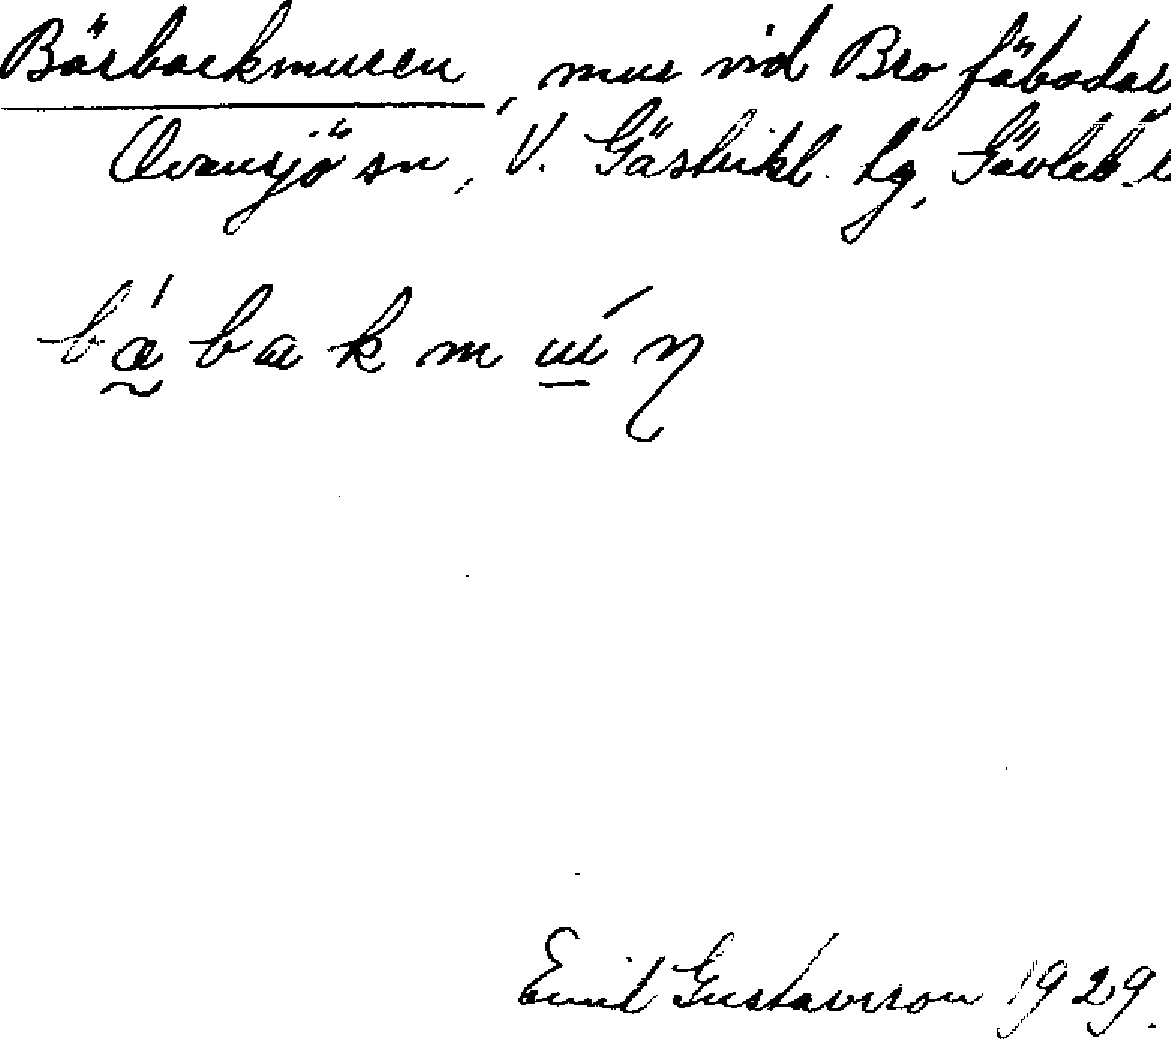 Bärbackmuren, mur vid Bro fäbodar,
Ovansjö sn, V. Gästrikl. hg, Gävleb. l
b a b a k m
Emil Gustavsson 1929.